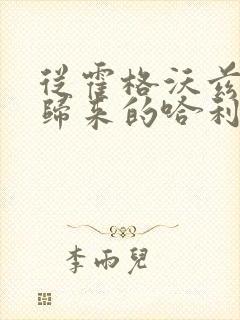 從霍格沃茲
歸來的哈利
李雨兒